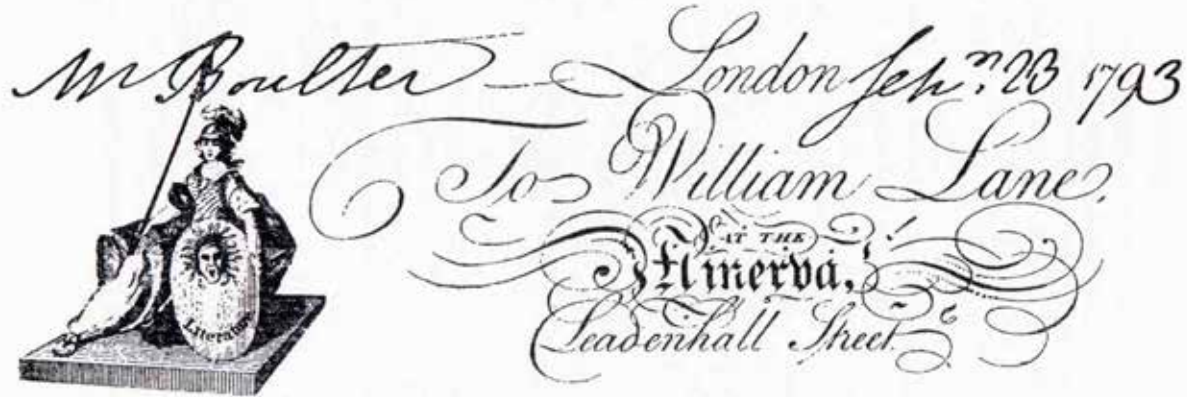 Mr Boulter — London Sepr. 23 1793
To William Lane,
AT THE
Minerva,
Leadenhall Street.
Literature